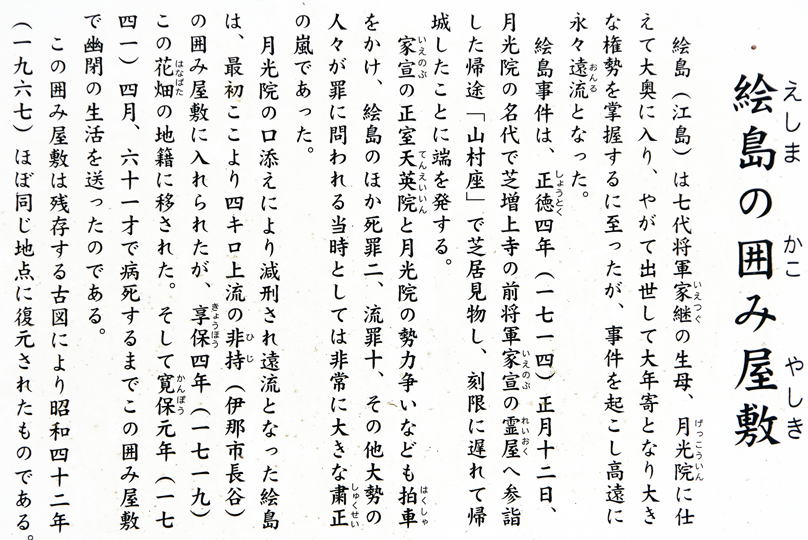 絵島の囲み屋敷
えしま かこ やしき
絵島（江島）は七代将軍家継の生母、月光院に仕
いえつぐ げっこういん
えて大奥に入り、やがて出世して大年寄となり大き
な権勢を掌握するに至ったが、事件を起こし高遠に
永々遠流となった。
おんる
絵島事件は、正徳四年（一七一四）正月十二日、
しょうとく
月光院の名代で芝増上寺の前将軍家宣の霊屋へ参詣
いえのぶ れいおく
した帰途「山村座」で芝居見物し、刻限に遅れて帰
城したことに端を発する。
家宣の正室天英院と月光院の勢力争いなども拍車
いえのぶ てんえいいん はくしゃ
をかけ、絵島のほか死罪二、流罪十、その他大勢の
人々が罪に問われる当時としては非常に大きな粛正
しゅくせい
の嵐であった。
月光院の口添えにより減刑され遠流となった絵島
は、最初ここより四キロ上流の非持（伊那市長谷）
ひじ
の囲み屋敷に入れられたが、享保四年（一七一九）
きょうほう
この花畑の地籍に移された。そして寛保元年（一七
はなばた かんぽう
四一）四月、六十一才で病死するまでこの囲み屋敷
で幽閉の生活を送ったのである。
この囲み屋敷は残存する古図により昭和四十二年
（一九六七）ほぼ同じ地点に復元されたものである。